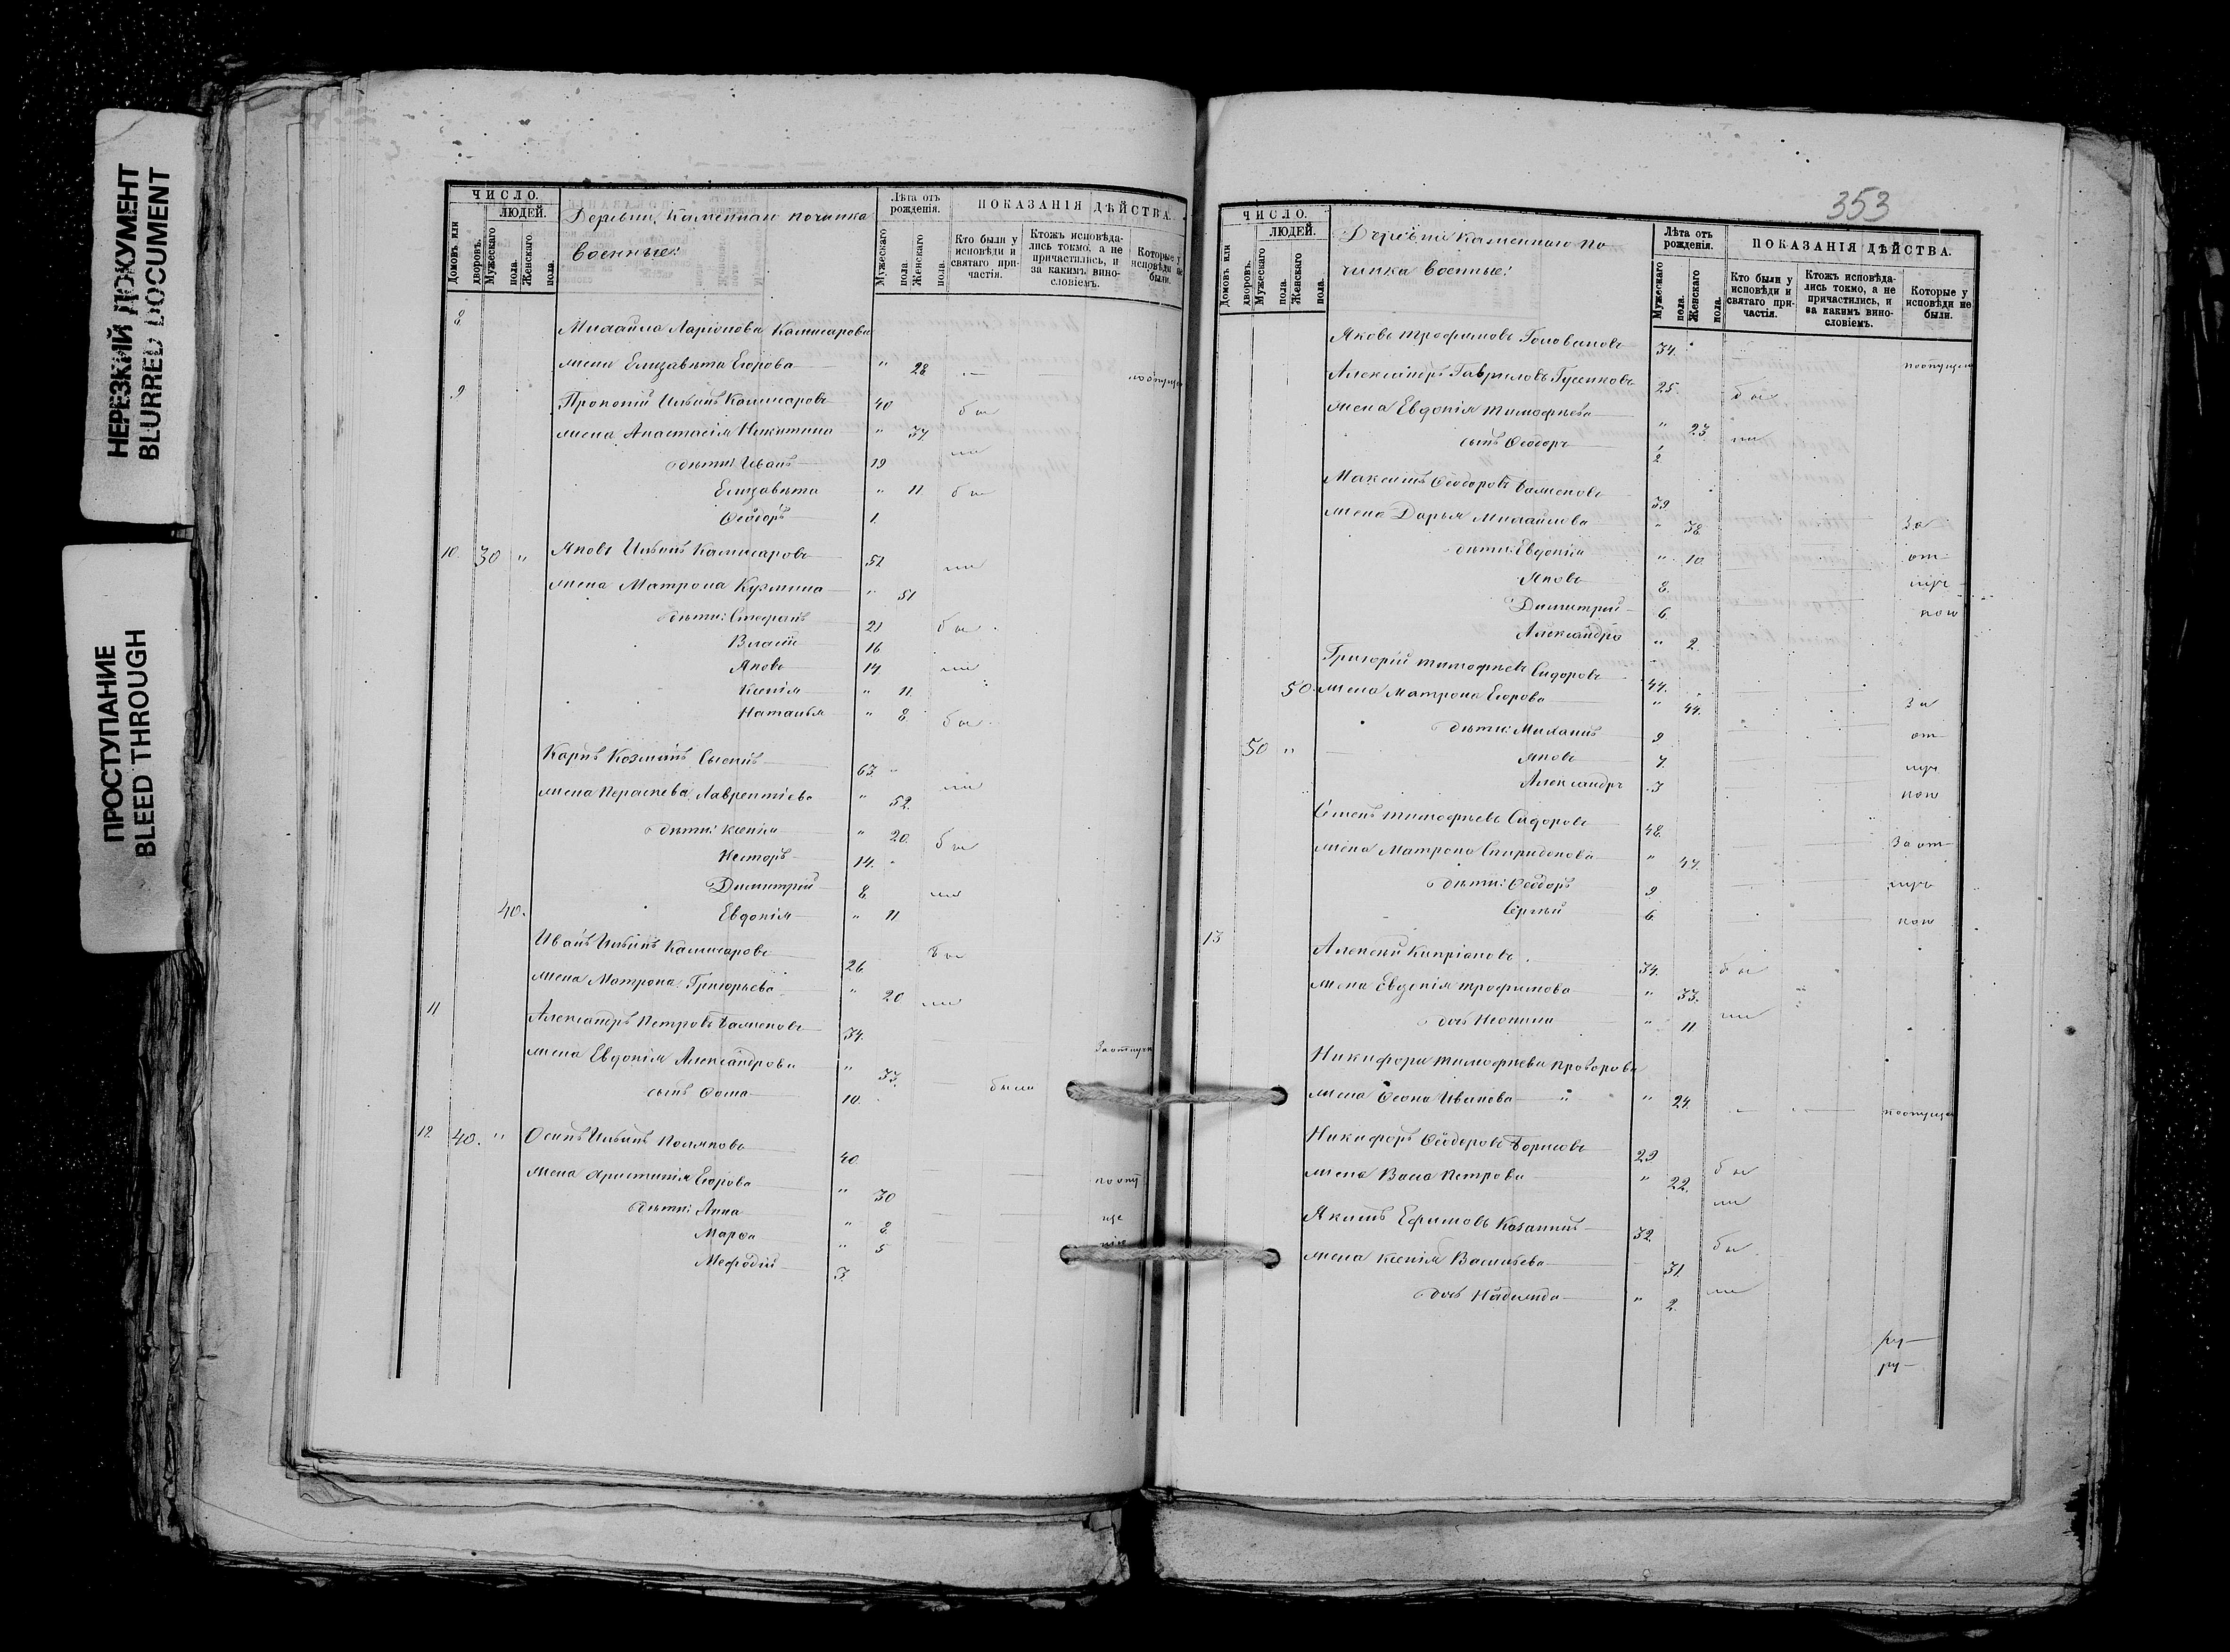 НЕРЕЗКИЙ ДОКУМЕНТ
BLURRED DOCUMENT
ПРОСТУПАНИЕ
BLEED THROUGH
ЧИСЛО.
ЛЮДЕЙ.
Домовъ или дворовъ.
Мужескаго пола.
Женскаго пола.
Деревни Каменнаго починка
военные:
Лѣта отъ рожденія.
Мужескаго пола.
Женскаго пола.
ПОКАЗАНІЯ ДѢЙСТВА.
Кто были у исповѣди и святаго причастія.
Ктожъ исповѣдались токмо, а не причастились, и за какимъ винословіемъ.
Которые у исповѣди не были.
8 Михаила Ларіонова Каммсарова
жена Елизавета Егорова " 28
9 Прокопій Ильинъ Каммсаровъ 40 бы
жена Анастасія Никитина " 37 ли
дѣти: Иванъ 19
Елизавета " 11 бы
Ѳеодоръ 1
10. 30 " Яковъ Ильинъ Каммсаровъ 52 ли
жена Матрона Кузмина " 51
дѣти: Стефанъ 21 бы
Власій 16
Яковъ 14 ли
Ксенія " 11.
Наталья " 8. бы
Карпъ Козминъ 63 ли
жена Параскева Лаврентіева " 52.
дѣти: Ксенія " 20. бы
Несторъ 14.
Димитрій 8 ли
40. Евдокія " 11
Иванъ Ильинъ Каммсаровъ 26 бы
жена Матрона Григорьева " 20 ли
11 Александръ Петровъ 34.
жена Евдокія Александрова " 33. была
сынъ Ѳома 10.
12 40. " Осипъ Ильинъ Поляковъ 40
жена Христинія Егорова " 30
дѣти: Анна " 8
Марѳа " 5
Меѳодій 3
353
ЧИСЛО.
ЛЮДЕЙ.
Домовъ или дворовъ.
Мужескаго пола.
Женскаго пола.
Деревни Каменнаго по
чинка военные:
Лѣта отъ рожденія.
Мужескаго пола.
Женскаго пола.
ПОКАЗАНІЯ ДѢЙСТВА.
Кто были у исповѣди и святаго причастія.
Ктожъ исповѣдались токмо, а не причастились, и за какимъ винословіемъ.
Которые у исповѣди не были.
Яковъ Трофимовъ Головановъ 34.
Александръ Гавриловъ Гусенковъ 25. бы
жена Евдокія Тимофѣева " 23 ли
сынъ Ѳеодоръ
Максимъ Ѳеодоровъ 39
жена Дарья Михайлова " 38 За
дѣти: Евдокія " 10 от
Яковъ 8.
Димитрій 6.
Александра " 2.
Григорій Тимофѣевъ Сидоровъ 44.
50. жена Матрона Егорова " 44. За
дѣти: Михаилъ 9 от
50 " Яковъ 7.
Александръ 3
Семенъ Тимофѣевъ Сидоровъ 48. За от
жена Матрона Спиридонова " 47.
дѣти: Ѳеодоръ 9
Сергѣй 6
13 Алексѣй Кипріановъ 34. бы
жена Евдокія Трофимова " 33. ли
дочь Неонила " 11
Никифора Тимофѣева
жена Ѳеона Иванова " 24.
Никифоръ Ѳеодоровъ Борисовъ 29 бы
жена Васа Петрова " 22. ли
Якимъ Ефимовъ 32. бы
жена Ксенія Васильева 31 ли
дочь Надежда " 2.